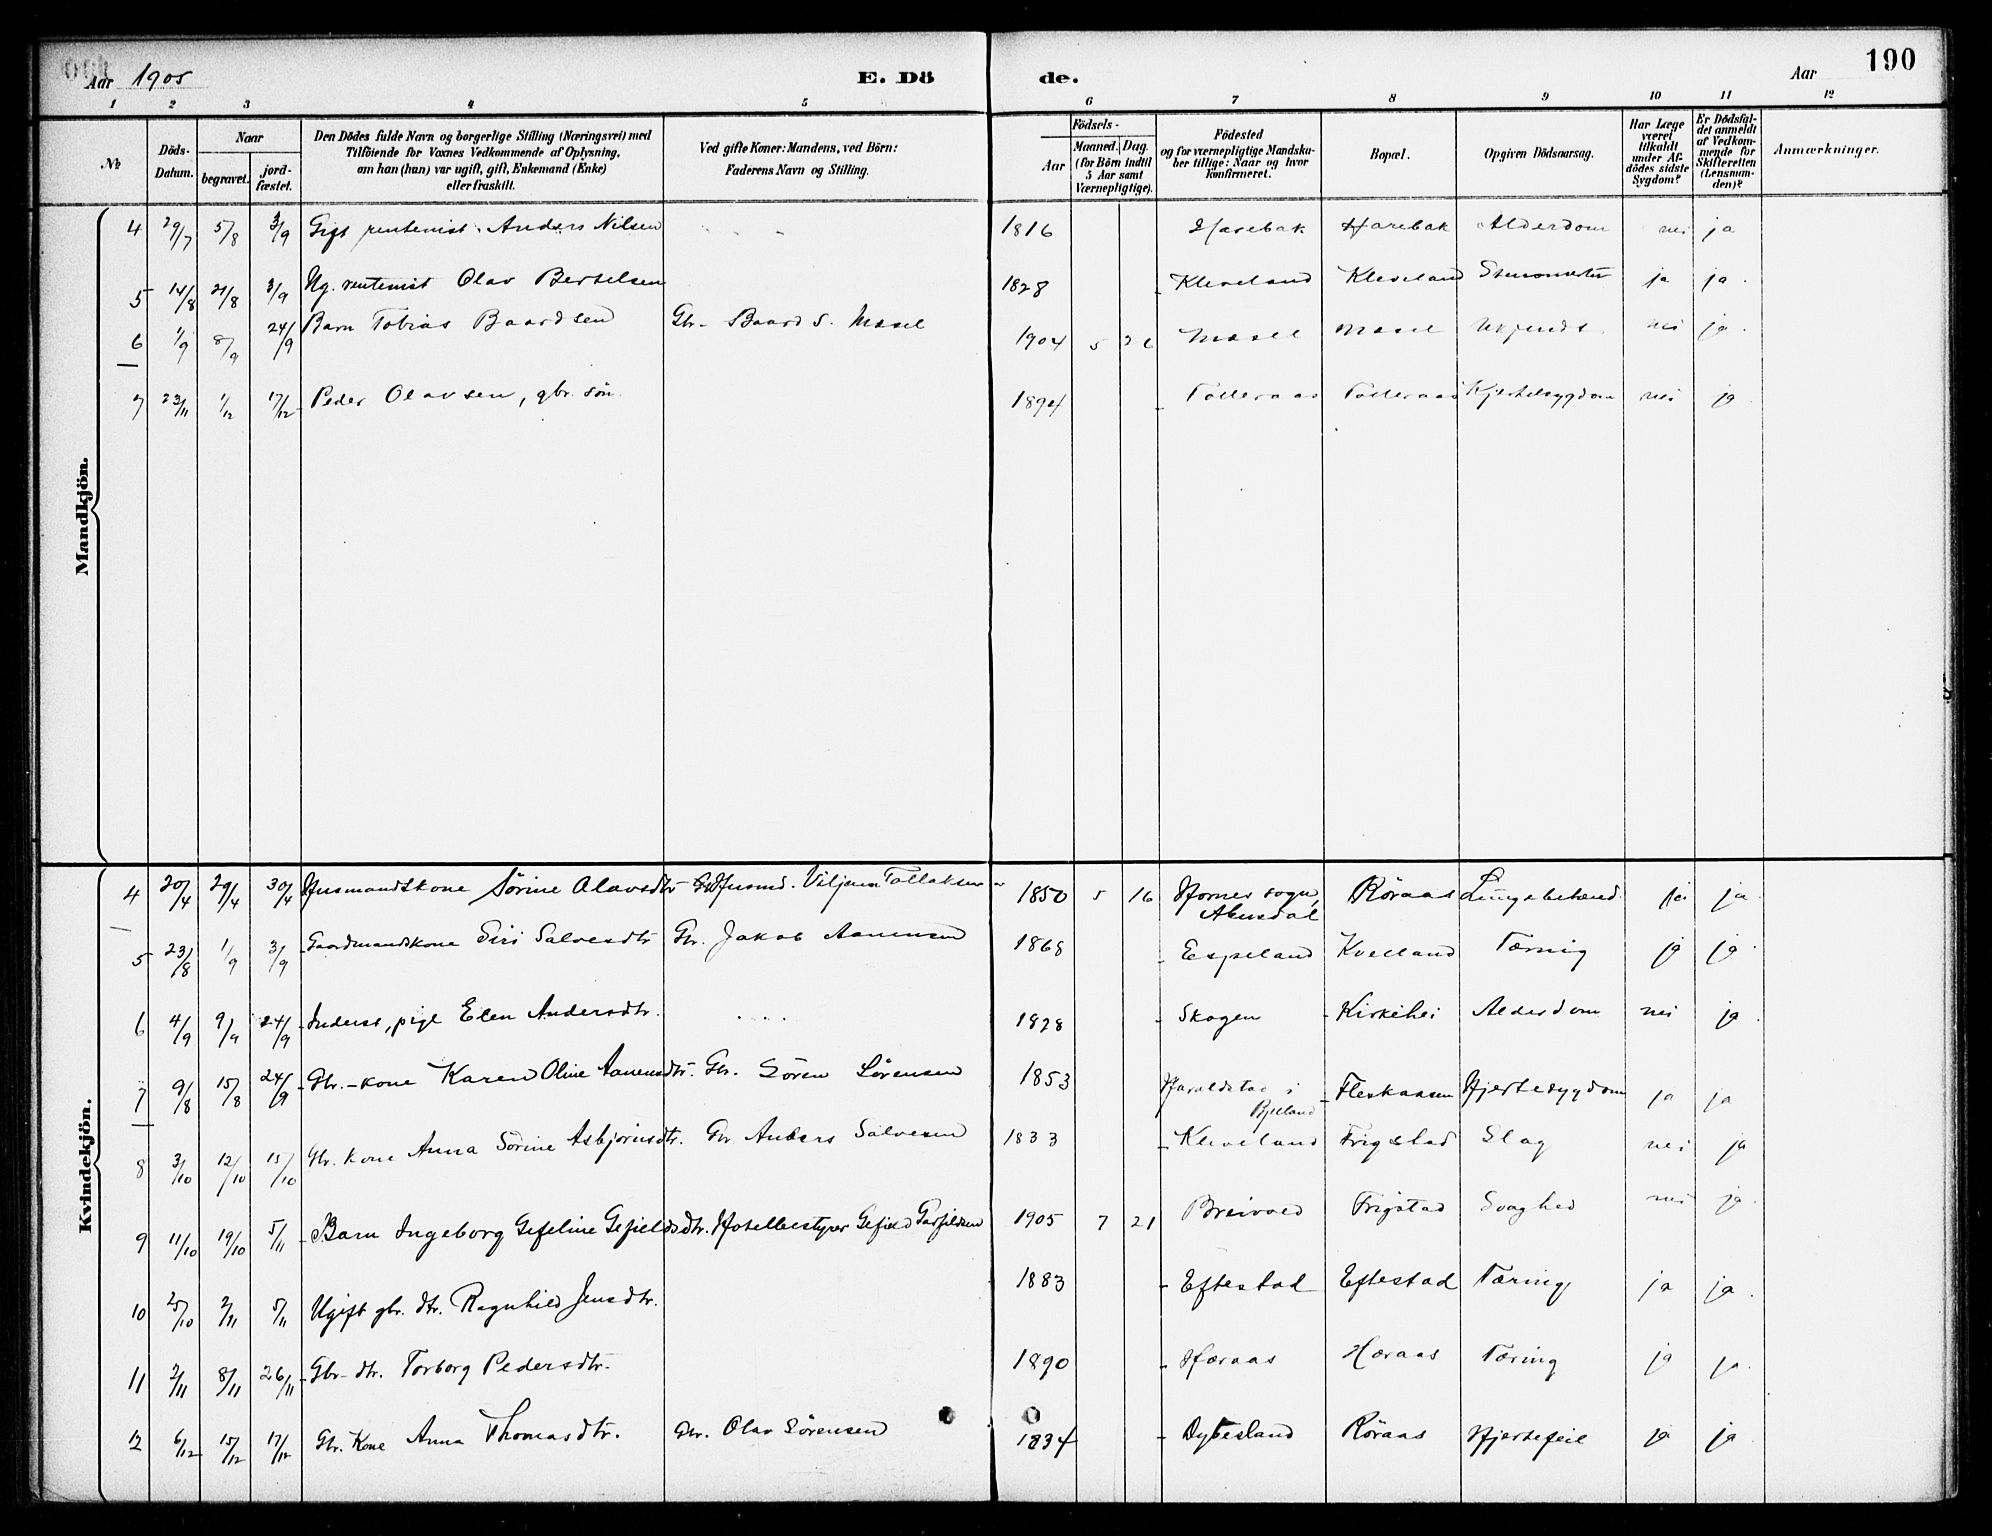 Aar 1905 E. Dö de. Aar 190
1 2 3 4 5 6 7 8 9 10 11 12
No
Döds-Datum.
Naar
begravet.
jord-fæstet.
Den Dödes fulde Navn og borgerlige Stilling (Næringsvei) med
Tilföiende for Voxnes Vedkommende af Oplysning,
om han (hun) var ugift, gift, Enkemand (Enke)
eller fraskilt.
Ved gifte Koner: Mandens, ved Börn:
Faderens Navn og Stilling.
Födsels-
Aar
Maaned. Dag.
(for Börn indtil
5 Aar samt
Værnepligtige).
Födested
og for værnepligtige Mandska-
ber tillige: Naar og hvor
konfirmeret.
Bopæl.
Opgiven Dödsaarsag.
Har Læge
været
tilkaldt
under Af-
dödes sidste
Sygdom?
Er Dödsfal-
det anmeldt
af Vedkom-
mende for
Skifteretten
(Lensman-
den)?
Anmærkninger.
Mandkjön.
4 29/7 5/8 3/9 Gift rentenist. Anders Nilsen 1816 Harebak Harebak Alderdom nei ja
5 14/8 21/8 3/9 Ug. rentenist Olav Bertelsen 1828 Kleveland Kleveland ja ja
6 1/9 8/9 24/9 Barn Tobias Baardsen Gbr. Baard S. Mosel 1904 5 26 Mosel Mosel Ukjendt nei ja
7 23/11 1/12 17/12 Peder Olavsen, gbr. sön 1894 Tolleraas Tolleraas Kjertelsygdom nei ja
Kvindekjön.
4 20/4 29/4 30/4 Husmandskone Sörine Olavsdtr Husmd. Viljam Tollaksen 1850 5 16 Hornes sogn, Röraas Lungebetænd. ja ja
5 23/8 1/9 3/9 Gaardmandskone Siri Salvesdtr Gbr. Jakob Aanensen 1868 Espeland Kvelland Tæring ja ja
6 4/9 9/9 24/9 Inderst, pige Elen Andersdtr. 1828 Skogen Kirkehei Alderdom nei ja
7 9/8 15/8 24/9 Gbr.-kone Karen Oline Aanensdtr. Gbr. Sören Sörensen 1853 Haraldstad i Bjelland Fleskaasen Hjertesygdom ja ja
8 3/10 12/10 15/10 Gbr. kone Anna Sörine Asbjörnsdtr. Gbr Anders Salvesen 1833 Kleveland Frigstad Slag nei ja
9 11/10 19/10 5/11 Barn Ingeborg Gefeline Gefieldsdtr. Hotelbestyrer Gefield Garfieldsen 1905 7 21 Breivold Frigstad Svaghed nei ja
10 25/10 2/11 5/11 Ugift gbr. dtr. Ragnhild Jensdtr. 1883 Eftestad Eftestad Tæring ja ja
11 2/11 8/11 26/11 Gbr-dtr. Torborg Pedersdtr. 1890 Høraas Høraas Tæring ja ja
12 6/12 15/12 17/12 Gbr. Kone Anna Thomasdtr. Gbr. Olav Sörensen 1834 Dybesland Röraas Hjertefeil ja ja